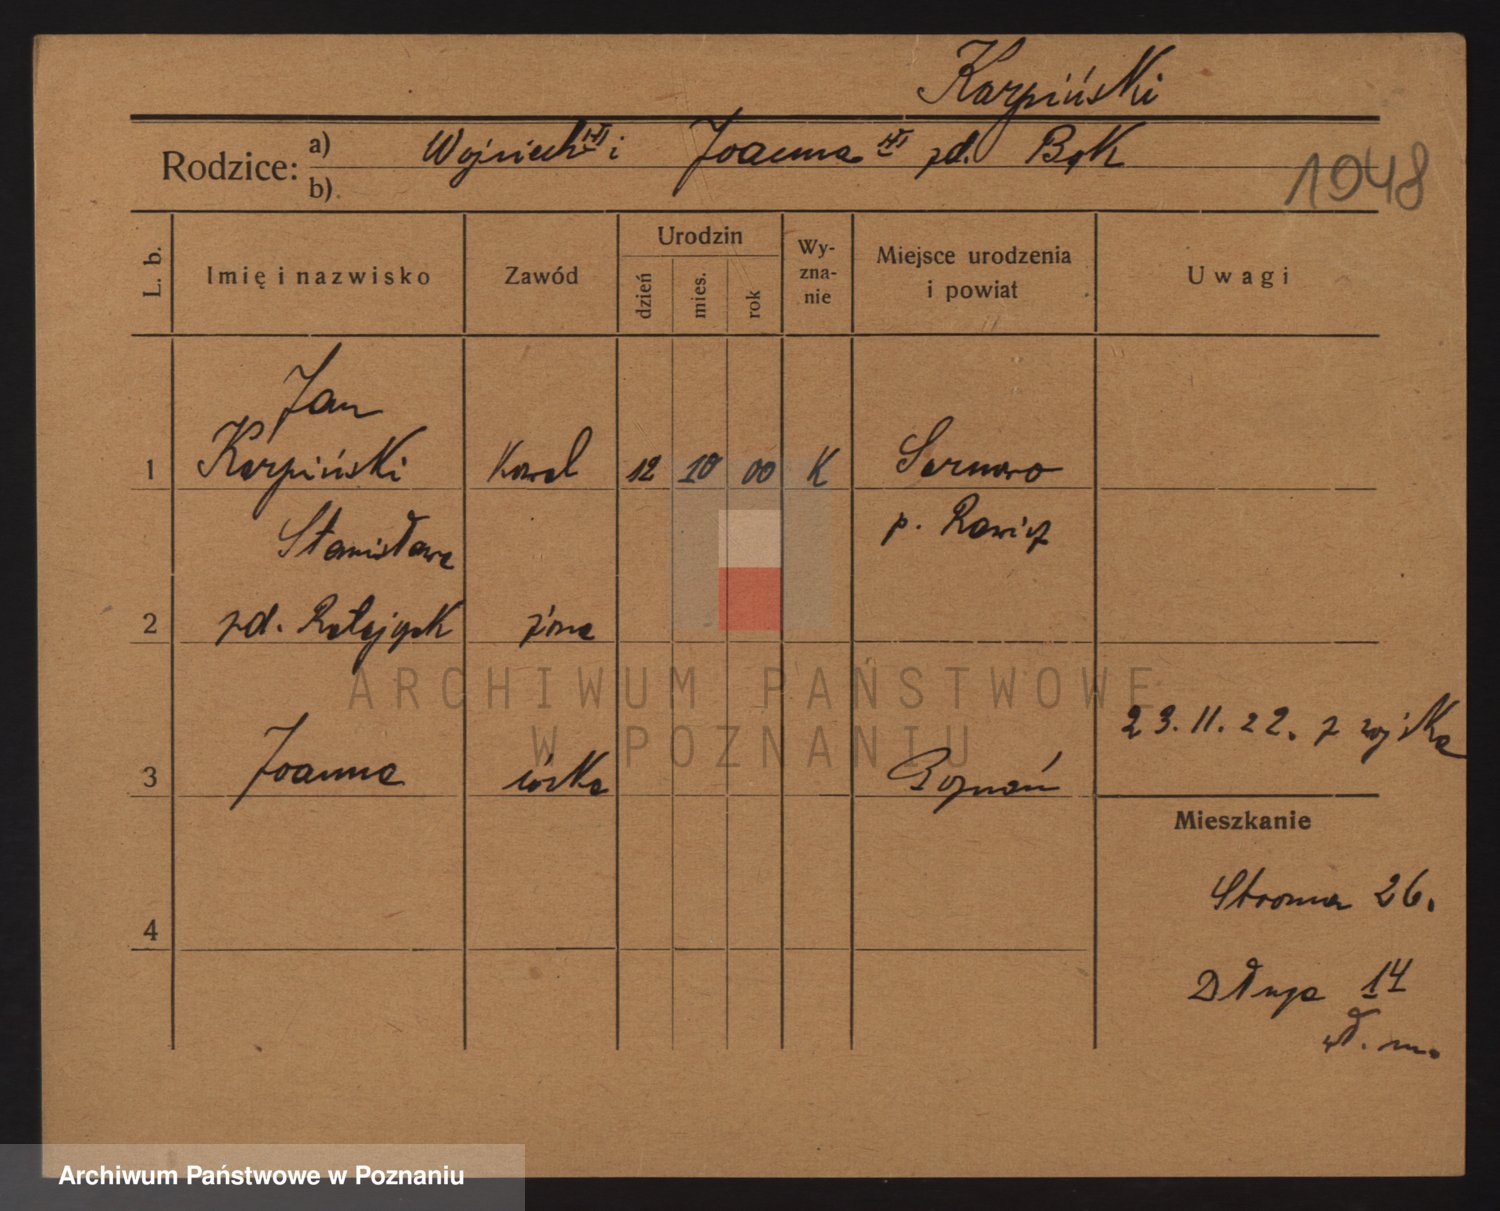 Karpiński
Rodzice: a) Wojciech i Joanna zd. Bąk
b)
1948
L. b. Imię i nazwisko Zawód Urodzin dzień mies. rok Wyznanie Miejsce urodzenia i powiat Uwagi
Jan
1 Karpiński Kowal 12 10 00 K Sarnowo
Stanisława p. Rawicz
2 zd. Ratajczak żona
23.11.22. z wojska
3 Joanna córka Poznań
Mieszkanie
Stroma 26.
4
Długa 14
wł. m.
ARCHIWUM PAŃSTWOWE
W POZNANIU
Archiwum Państwowe w Poznaniu